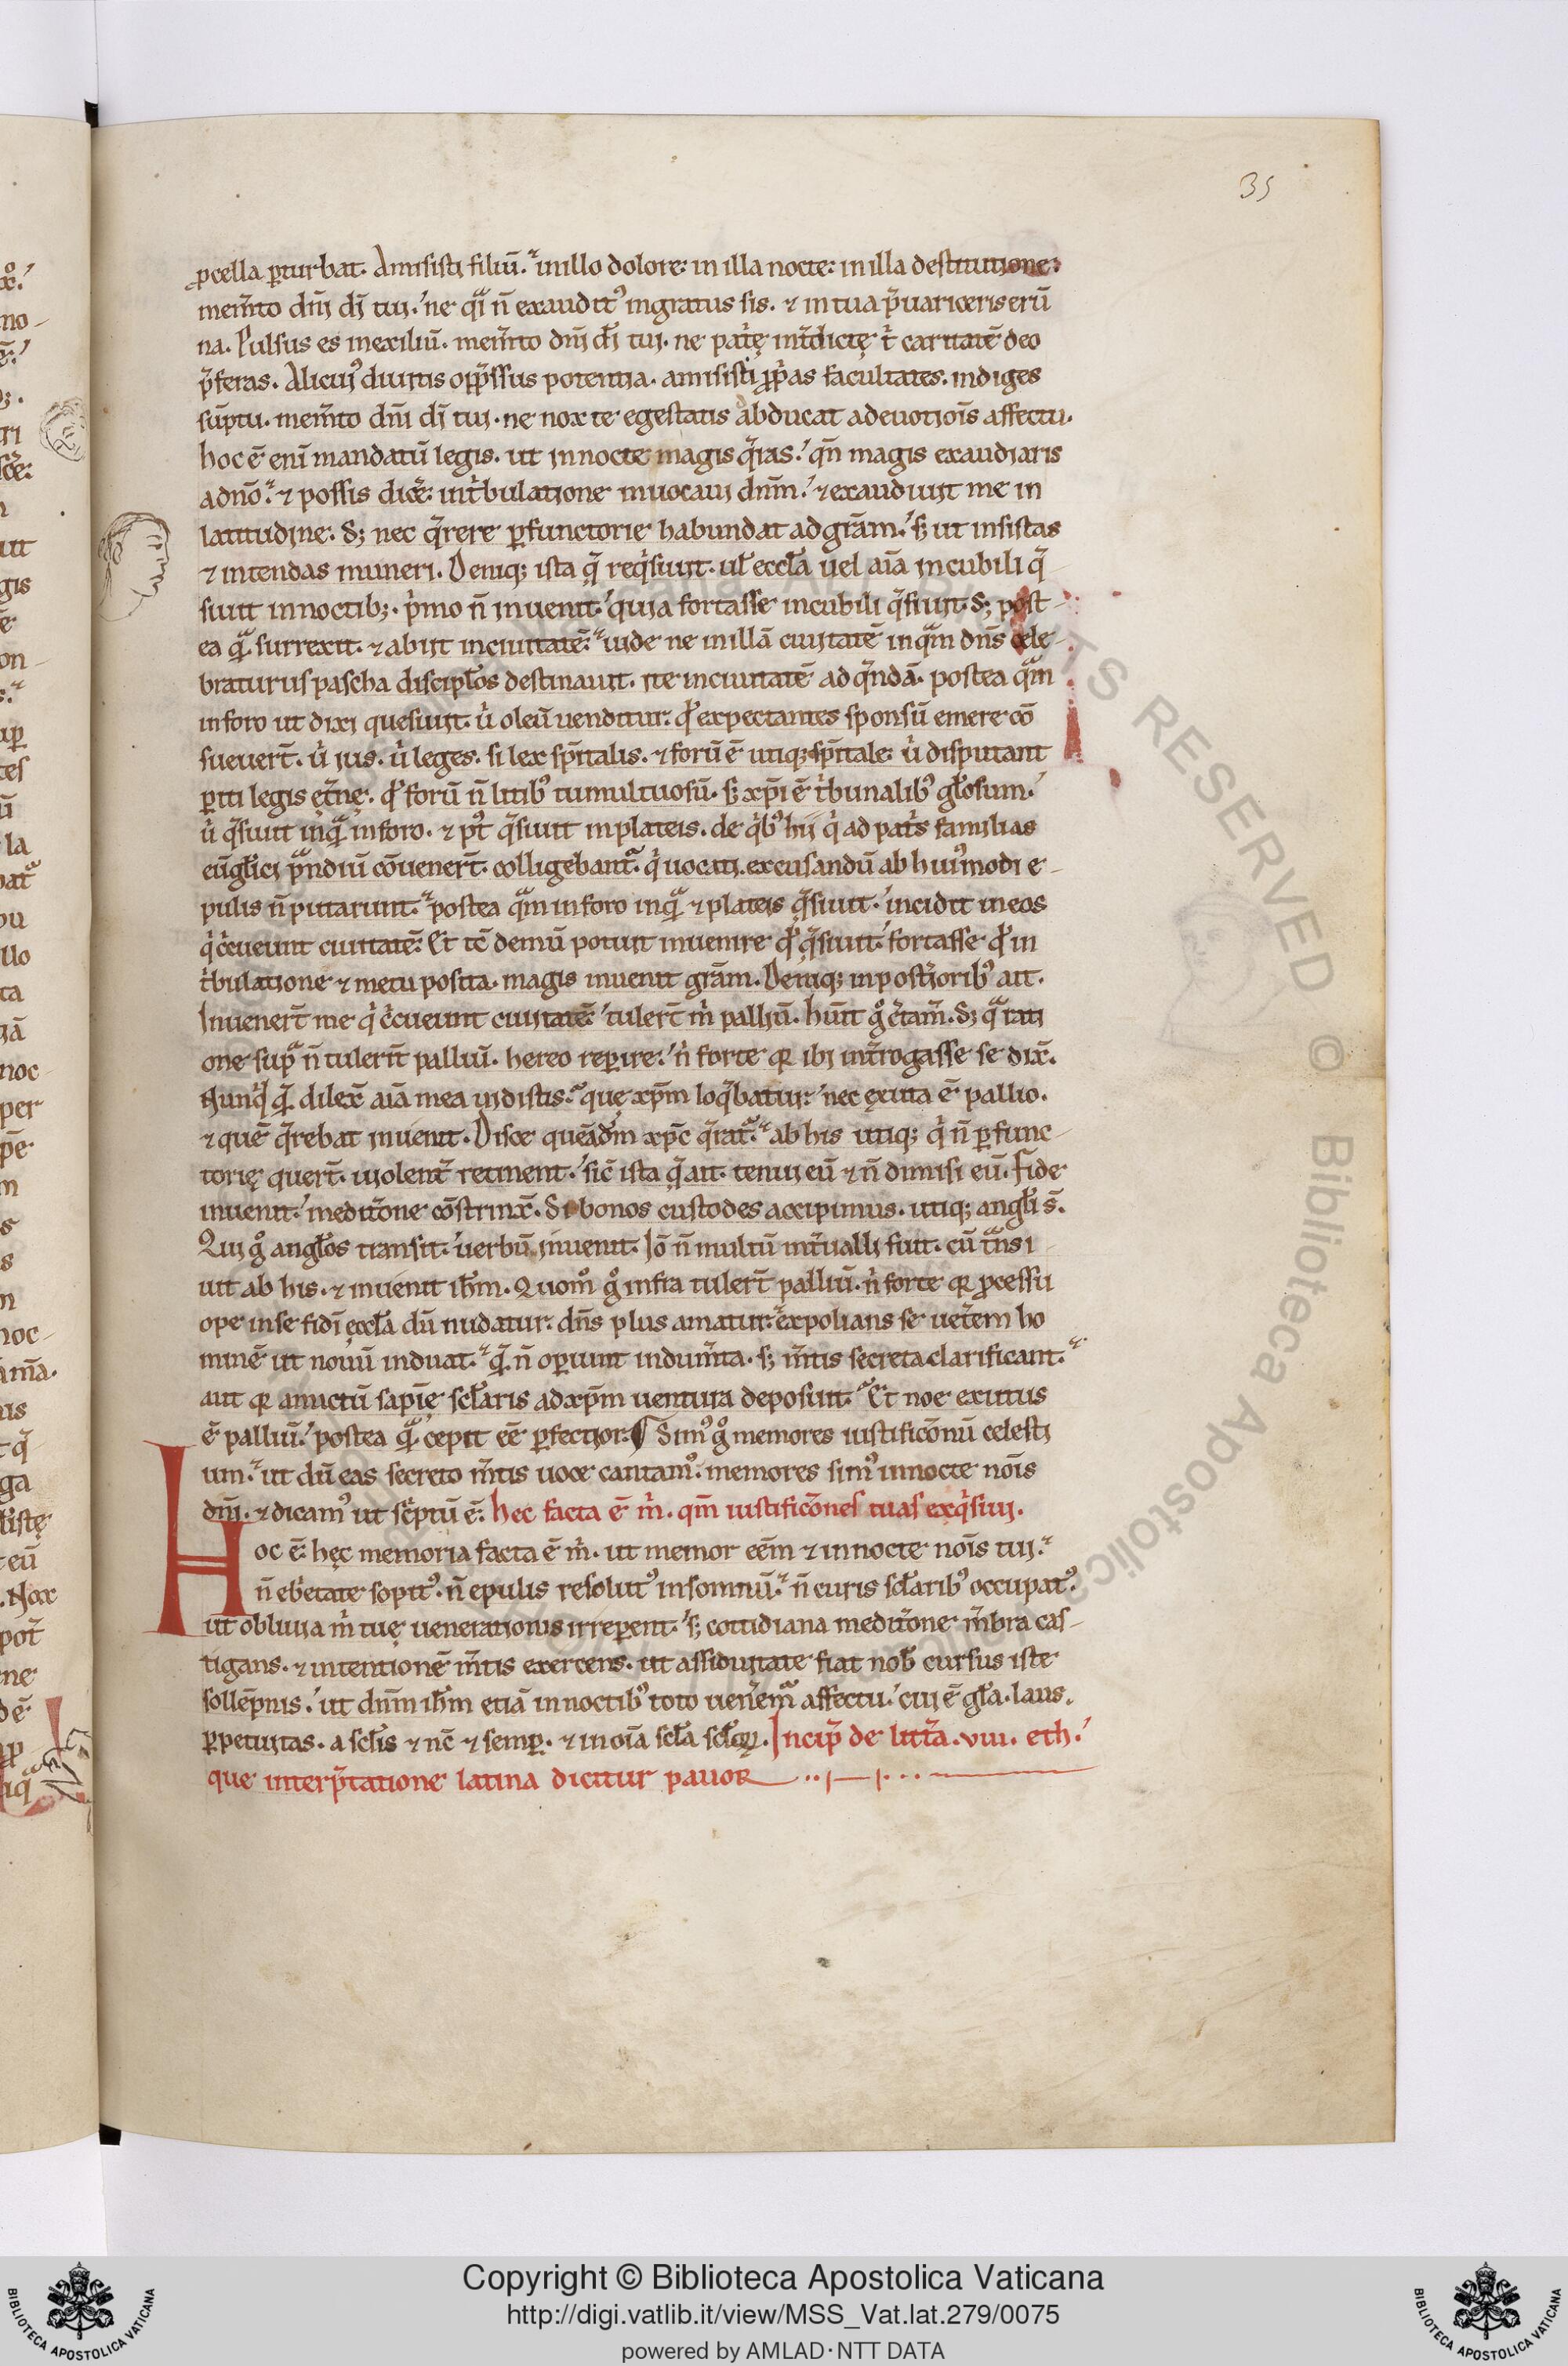 35
ꝓcella ꝑturbat. Amisisti filiū. in illo dolore: in illa nocte: in illa destitutione:
mem̄to dn̄i di tui. ne qͣi n̄ exauditꝰ ingratus sis. ⁊ in tua p̄uariceris erū
na. Pulsus es in exiliū. mem̄to dn̄i di tui. ne patͥę int̄dictę t̄ caritatē deo
p̄feras. Alicuiꝰ diuitis opp̄ssus potentia. amisisti ꝓpͥas facultates. indiges
sūptu. mem̄to dn̄i di tui. ne nox te egestatis abducat a deuotiōis affectu.
hoc ē enī mandatū legis. ut in nocte magis q̄ras. qn̄ magis exaudiaris
a dn̄o. ⁊ possis dicē: in tͥbulatione inuocaui dn̄m. ⁊ exaudiuit me in
latitudine. S; nec q̄rere ꝑfunctorie habundat ad grām. s; ut insistas
⁊ intendas muneri. Deniq; ista q̄ reqͥsiuit. ul̄ eccl̄a uel aīa in cubili q̄
siuit in noctib;. pͥmo n̄ inuenit. quia fortasse in cubili q̄siuit. S; post
ea qͣ surrexit. ⁊ abiit in ciuitatē. uide ne in illā ciuitatē in qͣm dn̄s cele-
braturus pascha discipl̄os destinauit. ite in ciuitatē ad q̄ndā. postea qͣm
in foro ut dixi quesiuit. uͥ oleū uenditur. qͦ expectantes sponsū emere cō
sueuert̄. uͥ ius. uͥ leges. si lex sp̄italis. ⁊ forū ē utiq; sp̄itale. uͥ disputant
ꝑiti legis et̄nę. qͦ forū n̄ litibꝰ tumultuosū. s; xp̄i ē tͥbunalibꝰ gl̄osum.
uͥ q̄siuit inqͣ in foro. ⁊ pꝰt q̄siuit in plateis. de qͥbꝰ hii qͥ ad patͥs familias
eūgl̄ici pͣndiū cōuenert̄. colligebantͣ. qͥ uocati. excusandū ab huiꝰmodi e-
pulis n̄ putarunt. postea qͣm in foro inqͣ ⁊ plateis q̄siuit. incidit in eos
qͥ cͥcueunt ciuitatē. Et tc̄ demū potuit inuenire qͦ q̄siuit. fortasse qͦ in
tͥbulatione ⁊ metu posita. magis inuenit grām. Deniq; in post̄ioribꝰ ait.
Inuenert̄ me qͥ cͥcueunt ciuitatē tulert̄ mͥ palliū. hūit gͦ c̄tam̄. S; qͣ rati
one supͣ n̄ tulerit̄ palliū. hereo reꝑire. nͥ forte qꝛ ibi int̄rogasse se dix̄.
Nunqͥd qͣ dilex̄ aīa mea uidistis. quę xp̄m loq̄batur. nec exuta ē pallio.
⁊ quē q̄rebat inuenit. Disce queādm̄ xp̄c q̄ratͣ. ab his utiq; qͥ n̄ ꝑfunc-
torię quert̄. uiolent̄ retinent. sic̄ ista q̄ ait. tenui eū ⁊ n̄ dimisi eū. Fide
inuenit. medit̄one cōstrinx̄. Si bonos custodes accipimus. utiq; angl̄i s̄.
Qui gͦ angl̄os transit. uerbū inuenit. Iō n̄ multū int̄ualli fuit. cū tͣnsi
uit ab his. ⁊ inuenit ih̄m. Quomͦ gͦ infra tulert̄ palliū. nͥ forte qꝛ ꝓcessu
ope in se fidī eccl̄a dū nudatur. dn̄s plus amatur. expolians se uet̄em ho
minē ut nouū induat. qͣ n̄ oꝑiunt indum̄ta. s; m̄tis secreta clarificant.
aut qꝛ amictū sapīę scl̄aris ad xp̄m uentura deposuit. Et noe exutus
ē palliū. postea qͣ cepit eē ꝑfectior. ¶ Simꝰ gͦ memores iustificōnū celesti
um. ut dū eas secreto m̄tis uoce cantamꝰ. memores simꝰ in nocte nōis
dn̄i. ⁊ dicamꝰ ut scͥptū ē. hec facta ē mͥ. qm̄ iustificōnes tuas exqͥsiui.
Hoc ē. hęc memoria facta ē mͥ. ut memor eēm ⁊ in nocte nōis tui.
n̄ ebͥetate sopitꝰ. n̄ epulis resolutꝰ in somnū. n̄ curis scl̄aribꝰ occupatꝰ.
ut obliuia mͥ tuę uenerationis irreꝑent. s; cottidiana medit̄one m̄bra cas-
tigans. ⁊ intentionē m̄tis exercens. ut assiduitate fiat nob̄ cursus iste
sollēpnis. ut dn̄m ih̄m etiā in noctibꝰ toto uen̄emͣ affectu. cui ē gl̄a. laus.
ꝑpetuitas. a scl̄is ⁊ nc̄ ⁊ semꝑ. ⁊ in oīa scl̄a scl̄oꝝ. Incip̄ de litt̄a .viii. eth.
que interp̄tatione latina dicitur pauor
Copyright © Biblioteca Apostolica Vaticana
http://digi.vatlib.it/view/MSS_Vat.lat.279/0075
powered by AMLAD·NTT DATA
BIBLIOTECA APOSTOLICA VATICANA
BIBLIOTECA APOSTOLICA VATICANA